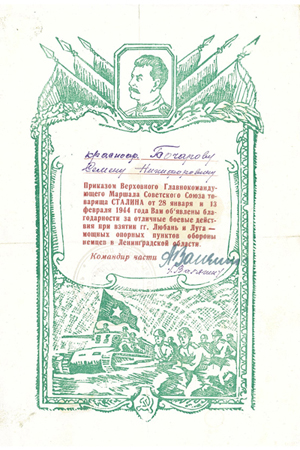 красноар. Бочарову
Семену Никифоровичу
Приказом Верховного Главнокоманду-
ющего Маршала Советского Союза то-
варища СТАЛИНА от 28 января и 13
февраля 1944 года Вам об'явлены бла-
годарности за отличные боевые дейст-
вия при взятии гг. Любань и Луга —
мощных опорных пунктов обороны
немцев в Ленинградской области.
Командир части